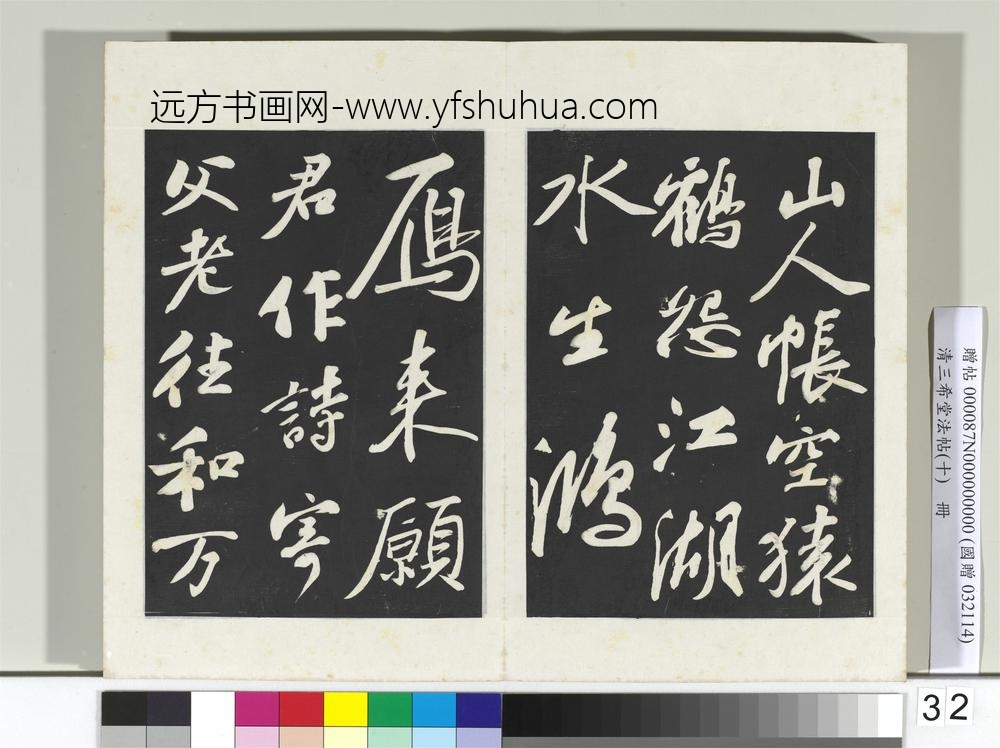 远方书画网-www.yfshuhua.com
山人帳空猿
鶴怨江湖
水生鴻
鴈来願
君作詩寄
父老往和万
贈帖 000087N000000000 (國贈 032114)
清三希堂法帖(十) 冊
32